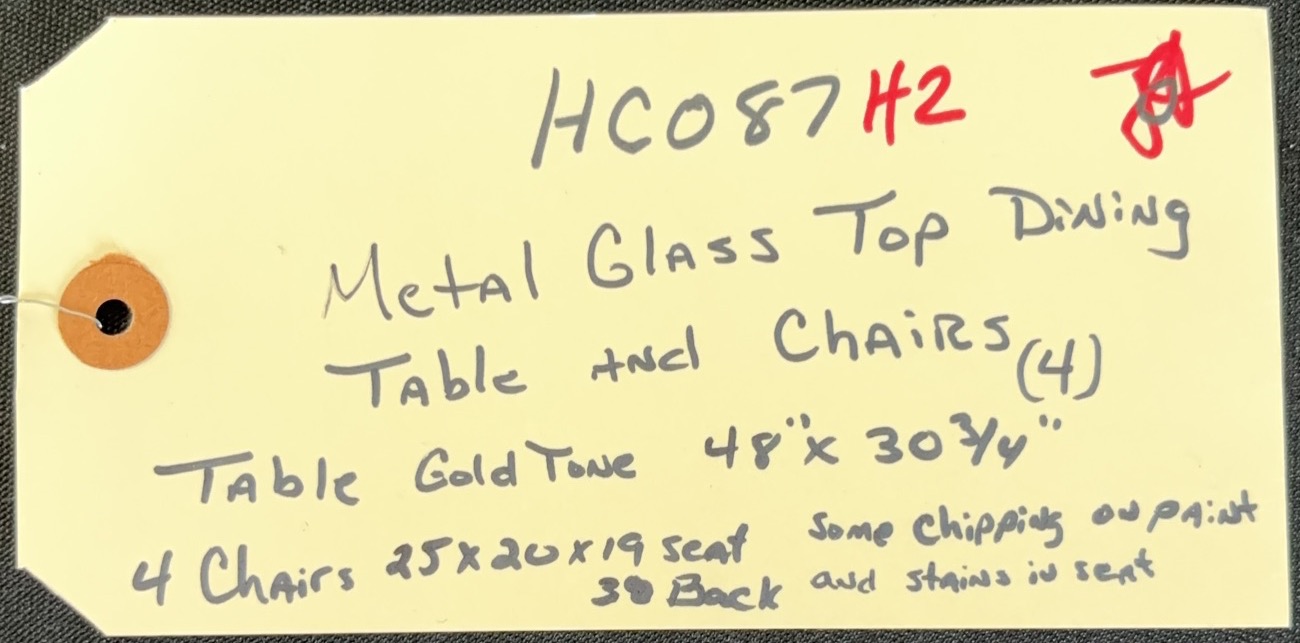 HC087 H2
Metal Glass Top Dining
Table And Chairs (4)
Table Gold Tone 48" x 30 3/4"
4 Chairs 25 x 20 x 19 seat Some chipping on paint
Back and stains in seat